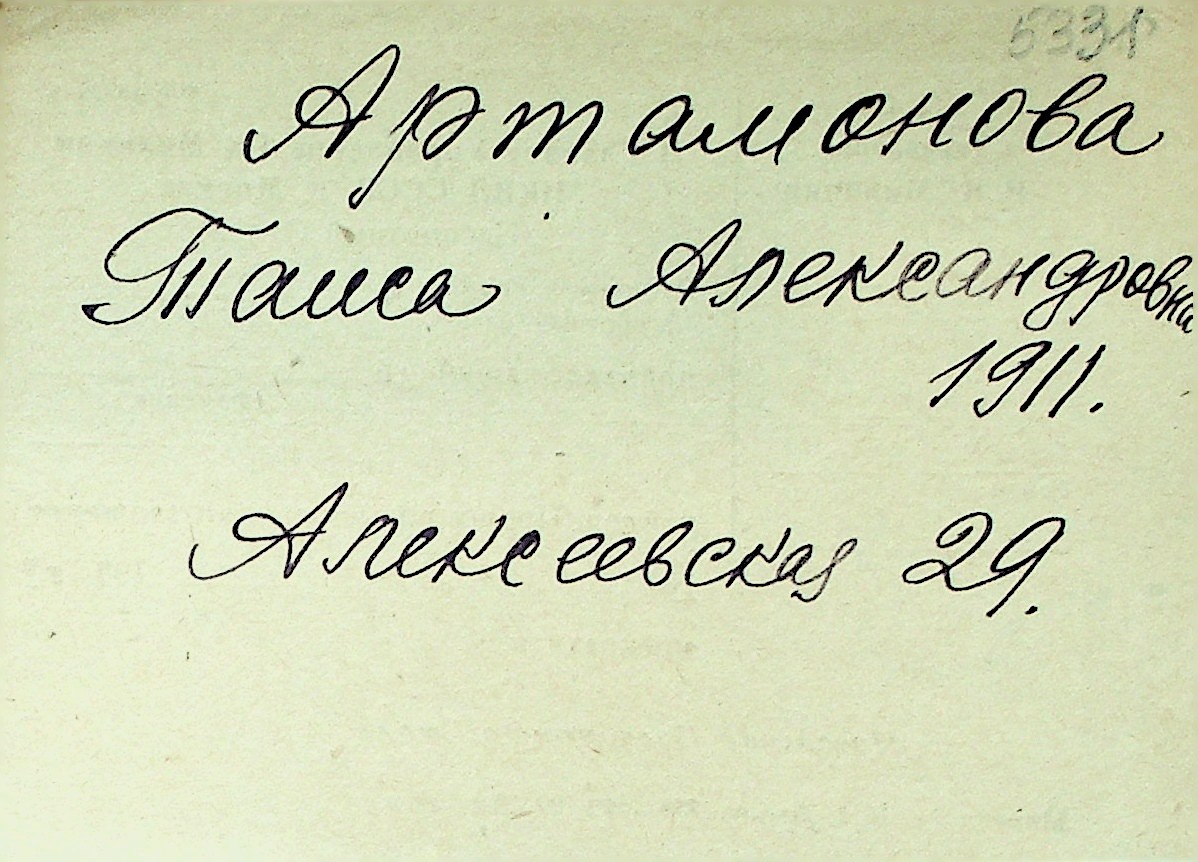 5331
Артамонова
Таиса Александровна
1911.
Алексеевская 29.